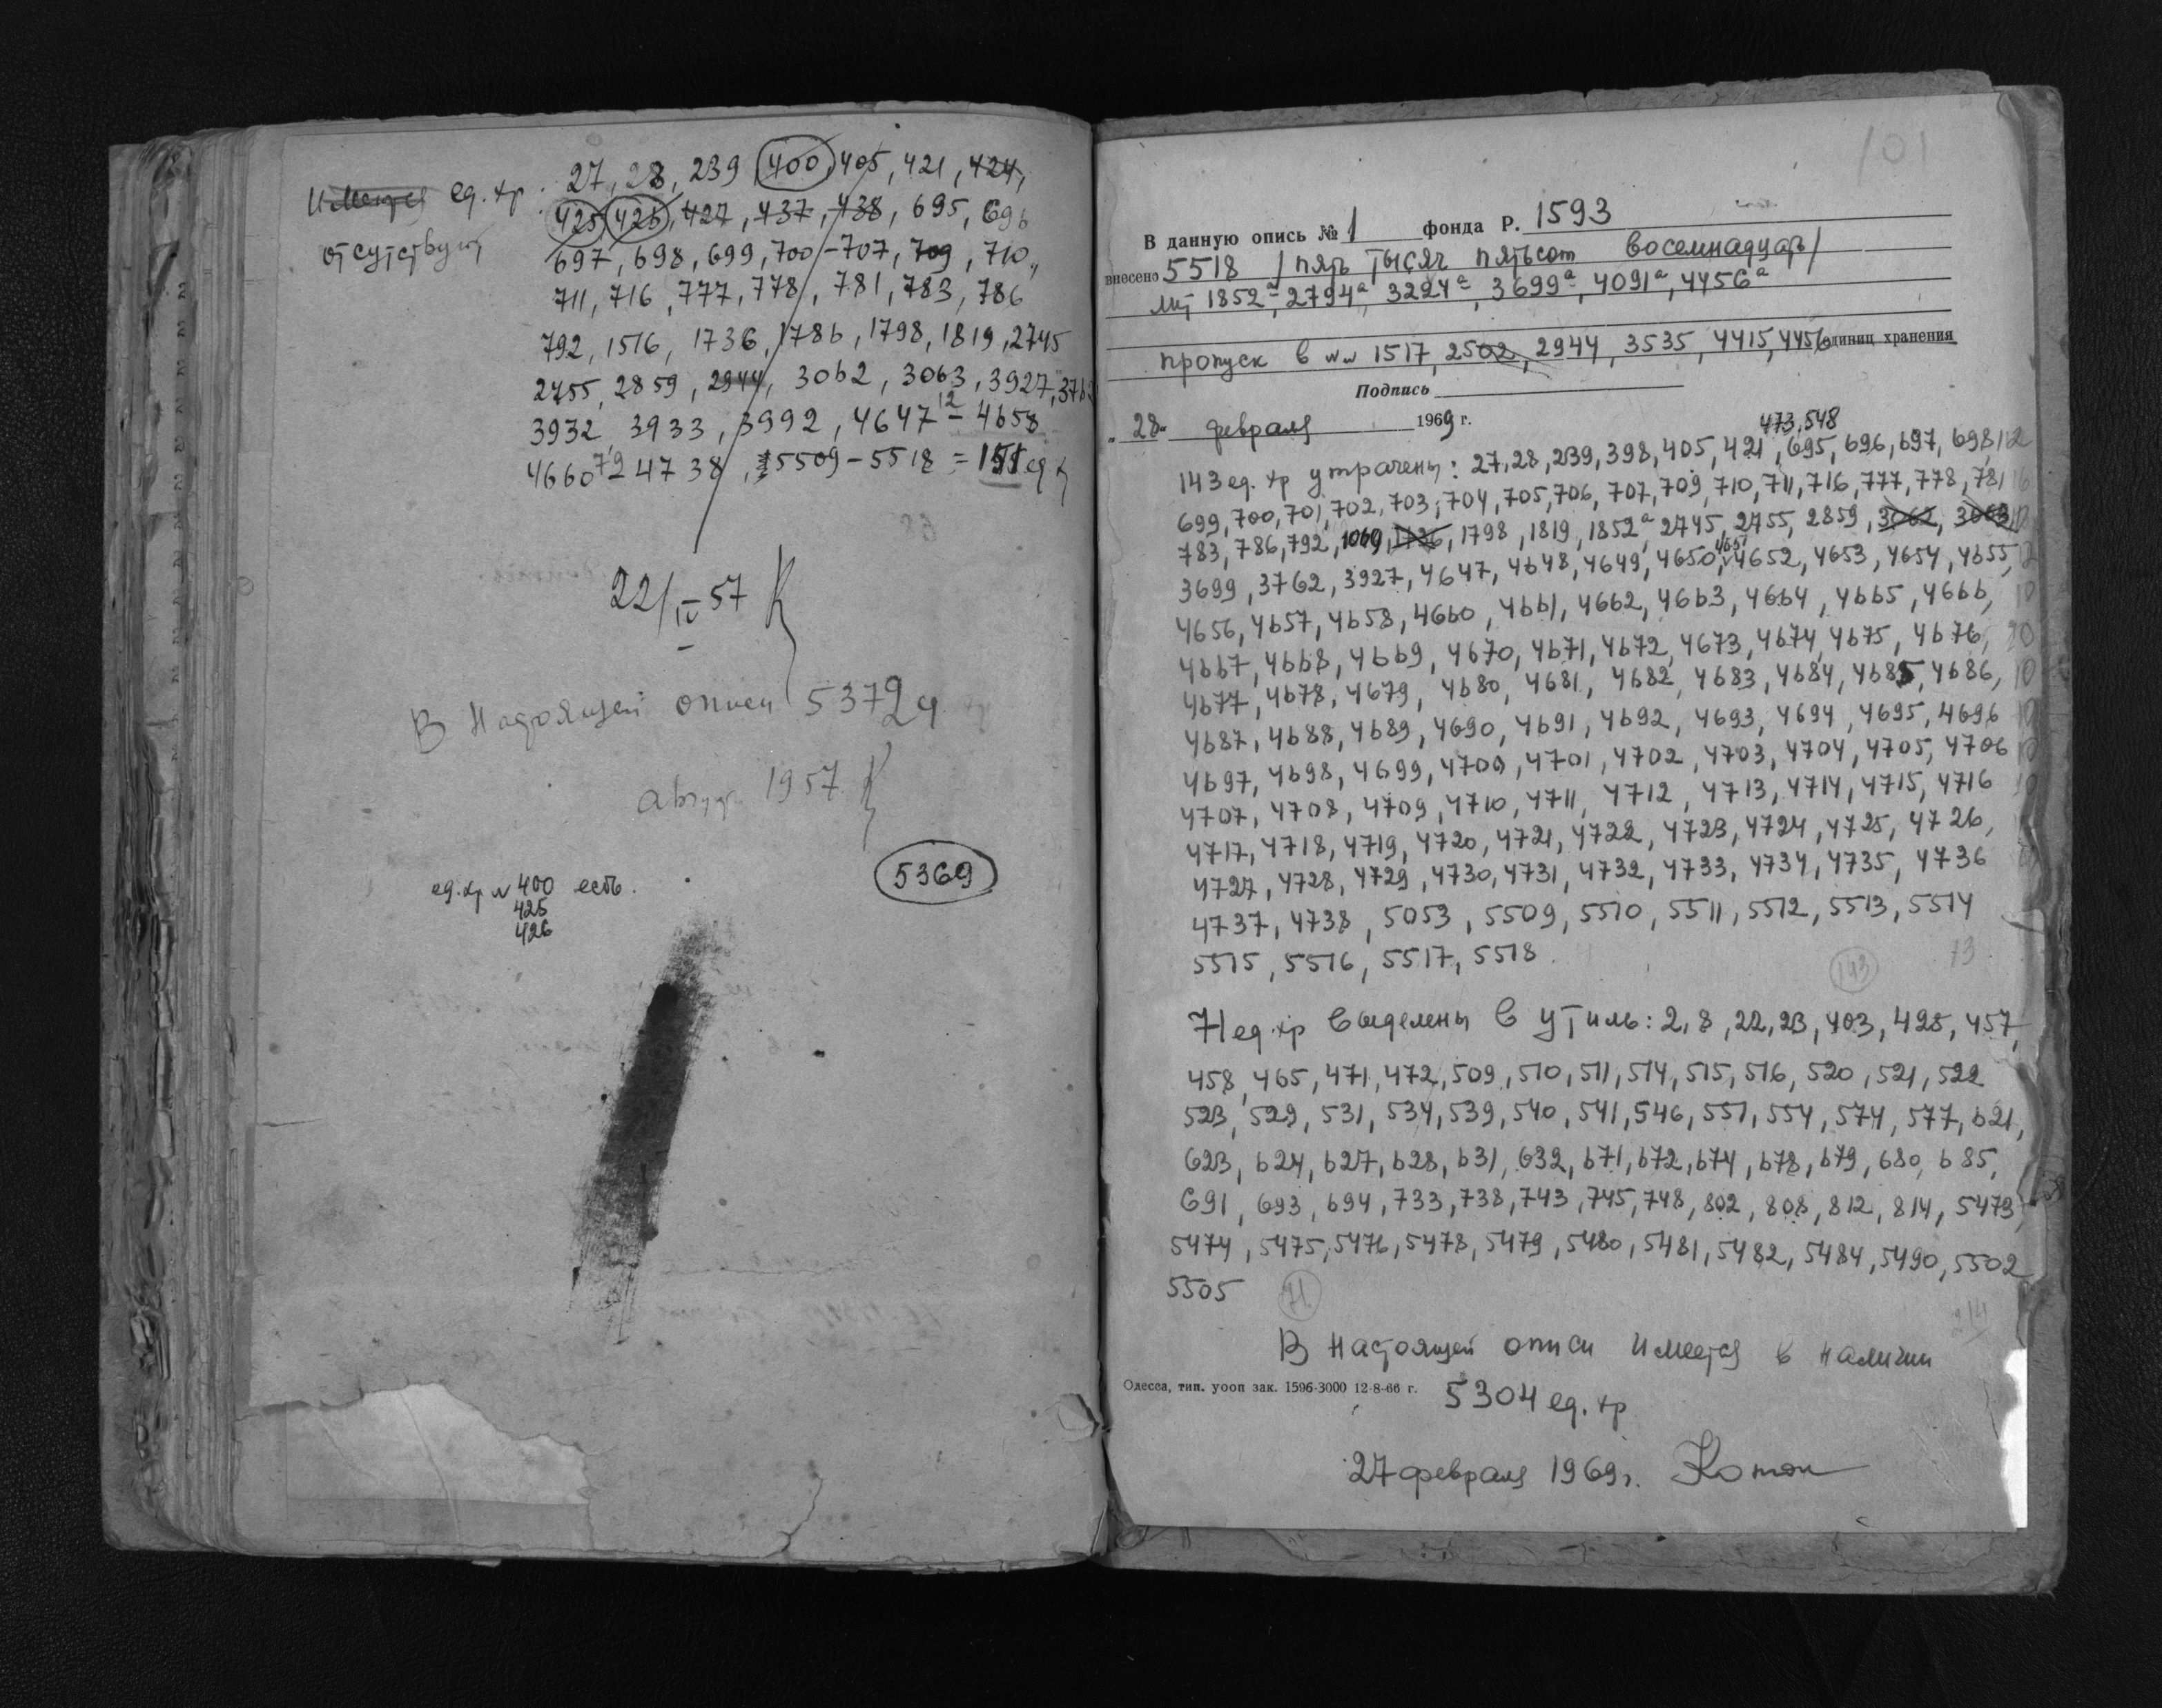 ед. хр. 27, 28, 239, 400, 405, 421, 424,
отсутствуют 425, 426, 427, 437, 438, 695, 696
697, 698, 699, 700-707, 709, 710,
711, 716, 777, 778, 781, 783, 786
792, 1516, 1736, 1786, 1798, 1819, 2745
2755, 2859, 2944, 3062, 3063, 3927,
3932, 3933, 3992, 4647 12 - 4658
4660 79 - 4738, 5509-5518 = 151 ед
22/IV-57
В настоящей описи 5372 ед
август 1957
5369
ед. хр № 400 есть.
425
426
101
В данную опись № 1 фонда Р. 1593
внесено 5518 /пять тысяч пятьсот восемнадцать/
лит 1852а, 2794а, 3224а, 3699а, 4091а, 4456а
пропуск в №№ 1517, 2502, 2944, 3535, 4415, 4456 единиц хранения
Подпись
„28“ февраля 1969 г.
473, 548
143 ед. хр утрачены: 27, 28, 239, 398, 405, 421, 695, 696, 697, 698 12
699, 700, 701, 702, 703, 704, 705, 706, 707, 709, 710, 711, 716, 777, 778, 781 16
783, 786, 792, 1069, 1736, 1798, 1819, 1852а, 2745, 2755, 2859, 3062, 3063, 10
4651
3699, 3762, 3927, 4647, 4648, 4649, 4650, 4652, 4653, 4654, 4655, 12
4656, 4657, 4658, 4660, 4661, 4662, 4663, 4664, 4665, 4666, 10
4667, 4668, 4669, 4670, 4671, 4672, 4673, 4674, 4675, 4676, 10
4677, 4678, 4679, 4680, 4681, 4682, 4683, 4684, 4685, 4686, 10
4687, 4688, 4689, 4690, 4691, 4692, 4693, 4694, 4695, 4696 10
4697, 4698, 4699, 4700, 4701, 4702, 4703, 4704, 4705, 4706 10
4707, 4708, 4709, 4710, 4711, 4712, 4713, 4714, 4715, 4716 10
4717, 4718, 4719, 4720, 4721, 4722, 4723, 4724, 4725, 4726,
4727, 4728, 4729, 4730, 4731, 4732, 4733, 4734, 4735, 4736
4737, 4738, 5053, 5509, 5510, 5511, 5512, 5513, 5514
5515, 5516, 5517, 5518. 143 13
71 ед. хр выделены в утиль: 2, 8, 22, 23, 403, 428, 457,
458, 465, 471, 472, 509, 510, 511, 514, 515, 516, 520, 521, 522
523, 529, 531, 534, 539, 540, 541, 546, 551, 554, 574, 577, 621,
623, 624, 627, 628, 631, 632, 671, 672, 674, 678, 679, 680, 685,
691, 693, 694, 733, 738, 743, 745, 748, 802, 808, 812, 814, 5473,
5474, 5475, 5476, 5478, 5479, 5480, 5481, 5482, 5484, 5490, 5502
5505 71
214
В настоящей описи имеется в наличии
Одесса, тип. уооп зак. 1596-3000 12-8-66 г. 5304 ед. хр
27 февраля 1969 г.